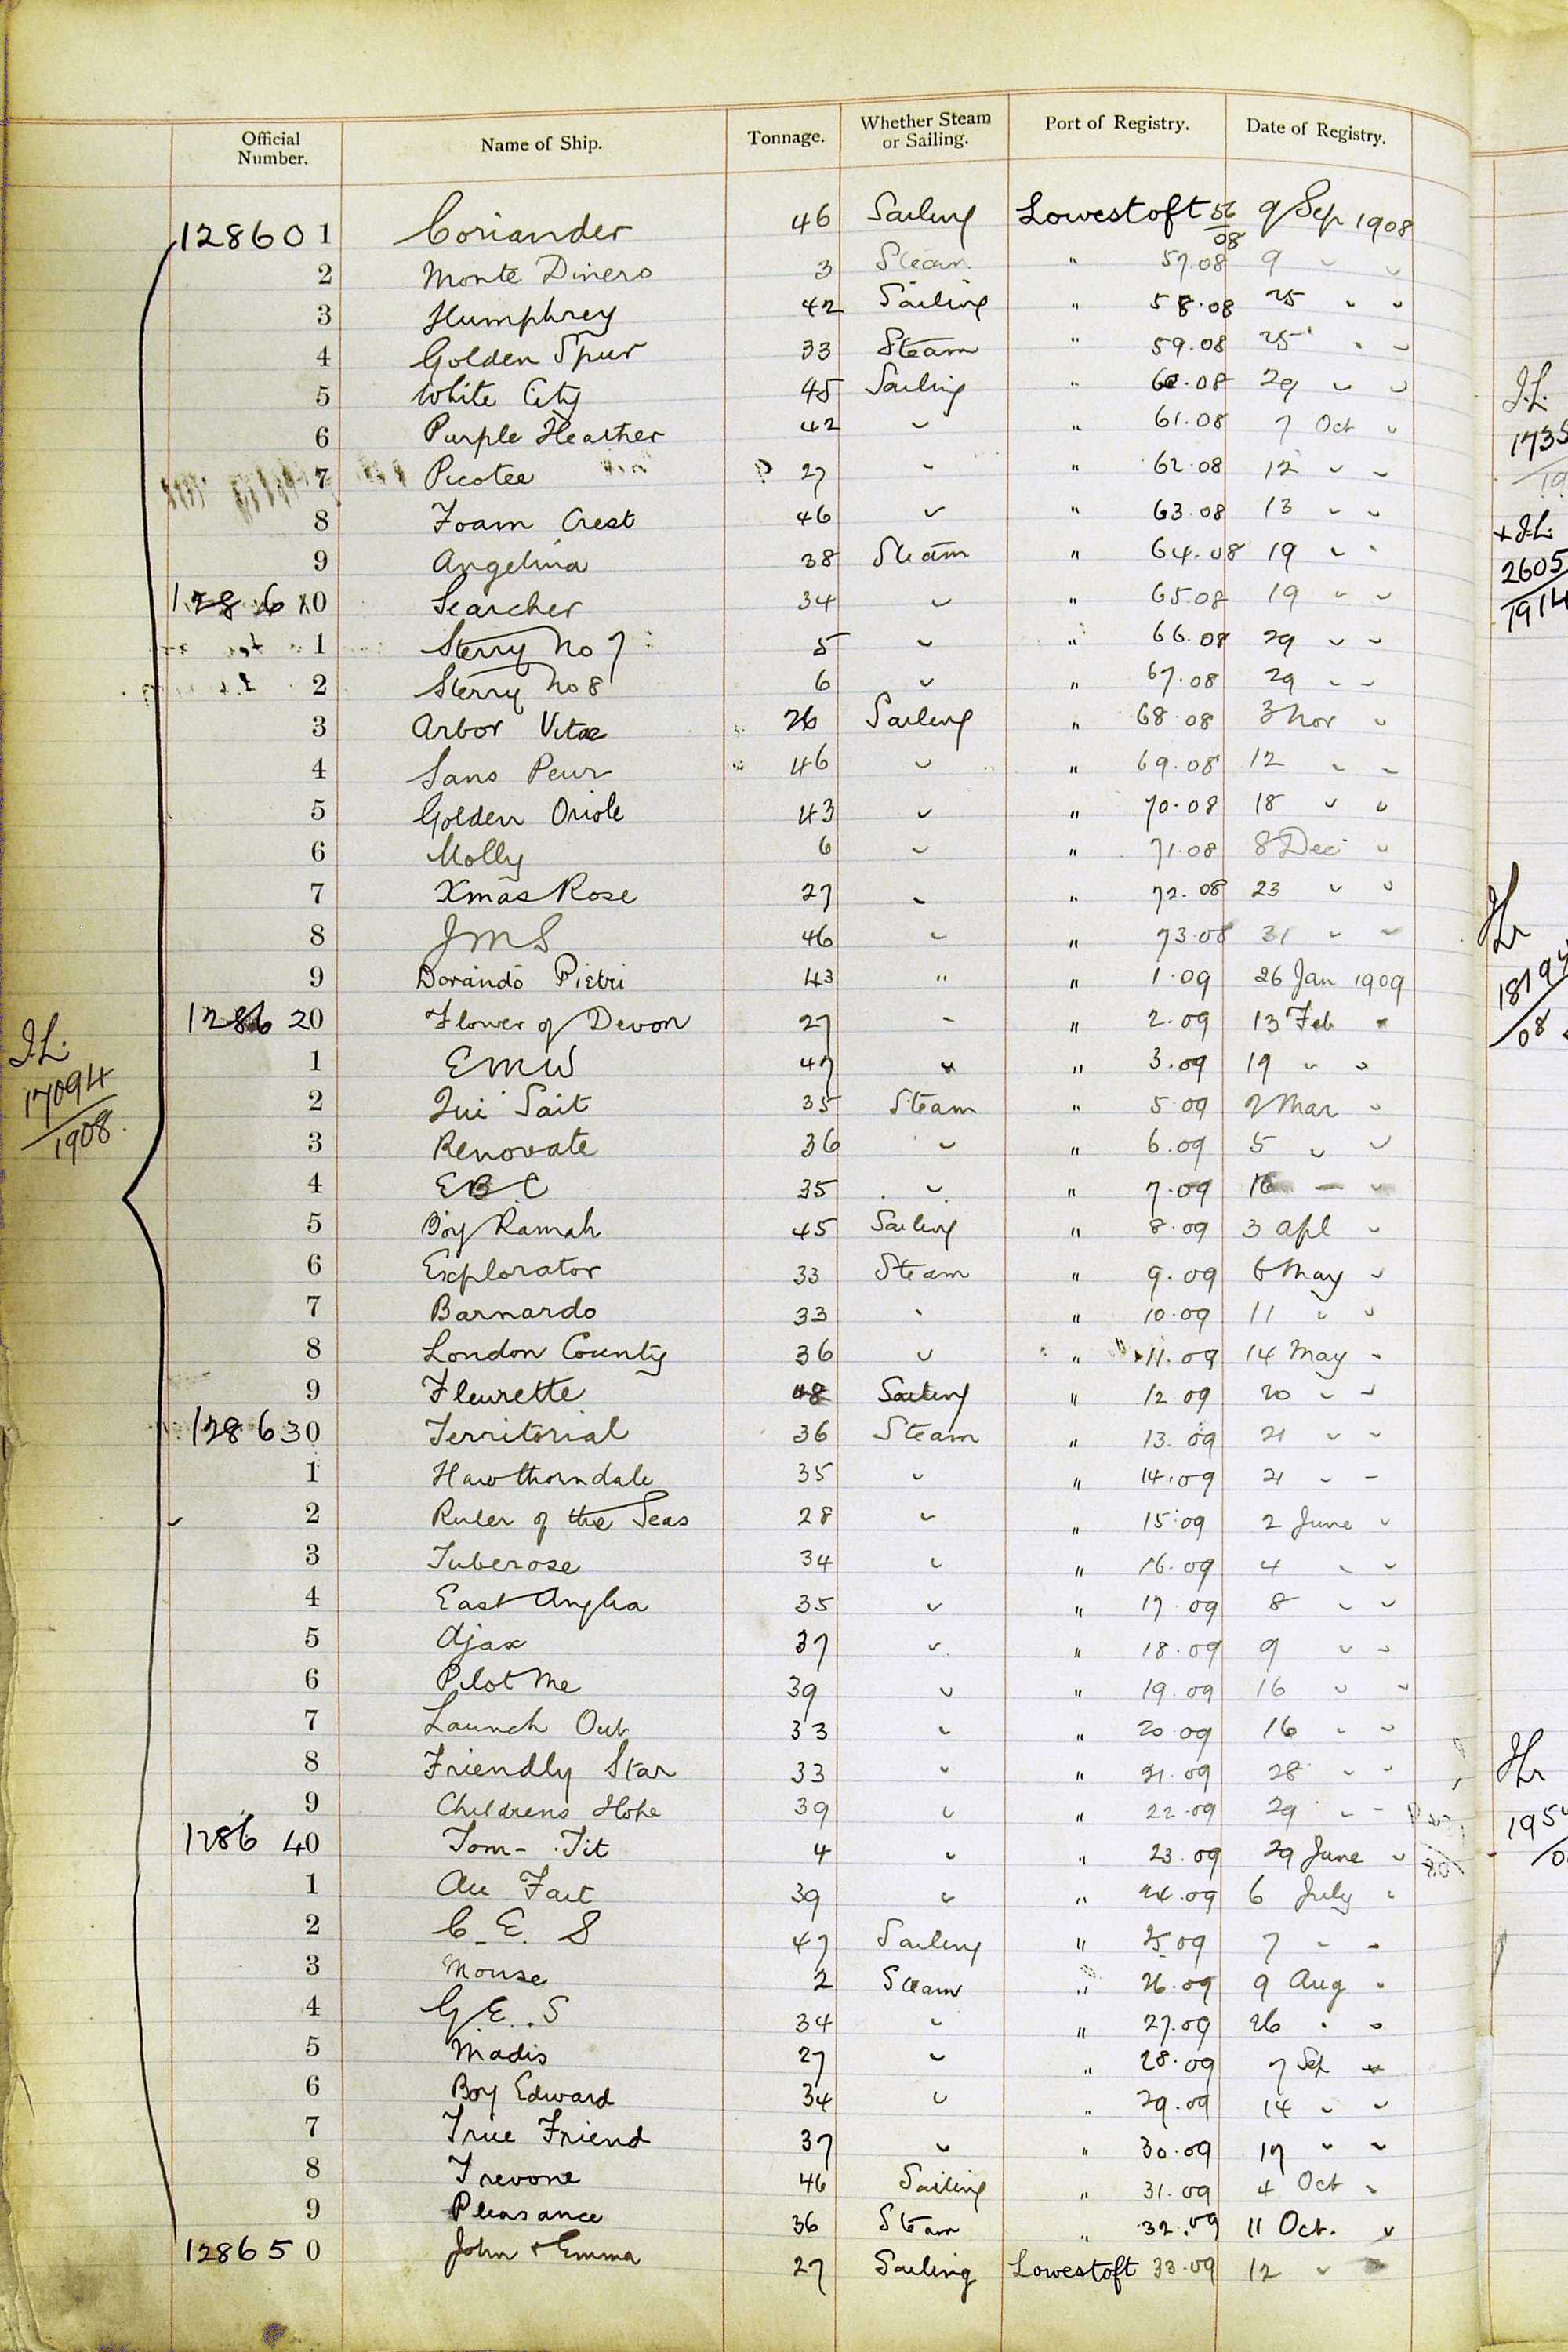 Official Number. Name of Ship. Tonnage. Whether Steam or Sailing. Port of Registry. Date of Registry.
128601 Coriander 46 Sailing Lowestoft 56/08 9 Sep 1908
2 Monte Dinero 3 Steam " 57.08 9 " "
3 Humphrey 42 Sailing " 58.08 25 " "
4 Golden Spur 33 Steam " 59.08 25 " "
5 White City 45 Sailing " 60.08 29 " "
6 Purple Heather 42 " " 61.08 7 Oct "
7 Picotee 27 " " 62.08 12 " "
8 Foam Crest 46 " " 63.08 13 " "
9 Angelina 38 Steam " 64.08 19 " "
128610 Searcher 34 " " 65.08 19 " "
1 Sterry No 7 5 " " 66.08 29 " "
2 Sterry No 8 6 " " 67.08 29 " "
3 Arbor Vitae 26 Sailing " 68.08 3 Nov "
4 Sans Peur 46 " " 69.08 12 " "
5 Golden Oriole 43 " " 70.08 18 " "
6 Molly 6 " " 71.08 8 Dec "
7 Xmas Rose 27 " " 72.08 23 " "
8 JMS 46 " " 73.08 31 " "
9 Dorando Pietri 43 " " 1.09 26 Jan 1909
128620 Flower of Devon 27 " " 2.09 13 Feb "
1 EMW 47 " " 3.09 19 " "
2 Qui Sait 35 Steam " 5.09 2 Mar "
3 Renovate 36 " " 6.09 5 " "
4 EBC 35 " " 7.09 16 " "
5 Boy Ramah 45 Sailing " 8.09 3 Apl "
6 Explorator 33 Steam " 9.09 6 May "
7 Barnardo 33 " " 10.09 11 " "
8 London County 36 " " 11.09 14 May "
9 Fleurette 48 Sailing " 12.09 20 " "
128630 Territorial 36 Steam " 13.09 21 " "
1 Hawthorndale 35 " " 14.09 21 " "
2 Ruler of the Seas 28 " " 15.09 2 June "
3 Tuberose 34 " " 16.09 4 " "
4 East Anglia 35 " " 17.09 8 " "
5 Ajax 37 " " 18.09 9 " "
6 Pilot Me 39 " " 19.09 16 " "
7 Launch Out 33 " " 20.09 16 " "
8 Friendly Star 33 " " 21.09 28 " "
9 Childrens Hope 39 " " 22.09 29 " "
128640 Tom-Tit 4 " " 23.09 29 June "
1 Au Fait 39 " " 24.09 6 July "
2 C. E. S 47 Sailing " 25.09 7 " "
3 Mouse 2 Steam " 26.09 9 Aug "
4 G.E.S 34 " " 27.09 26 " "
5 Madis 27 " " 28.09 7 Sep "
6 Boy Edward 34 " " 29.09 14 " "
7 True Friend 37 " " 30.09 17 " "
8 Trevone 46 Sailing " 31.09 4 Oct "
9 Pleasance 36 Steam " 32.09 11 Oct. "
128650 John & Emma 27 Sailing Lowestoft 33.09 12 " "
I.L.
17094
1908.
I.L.
+ I.L.
2605
1914